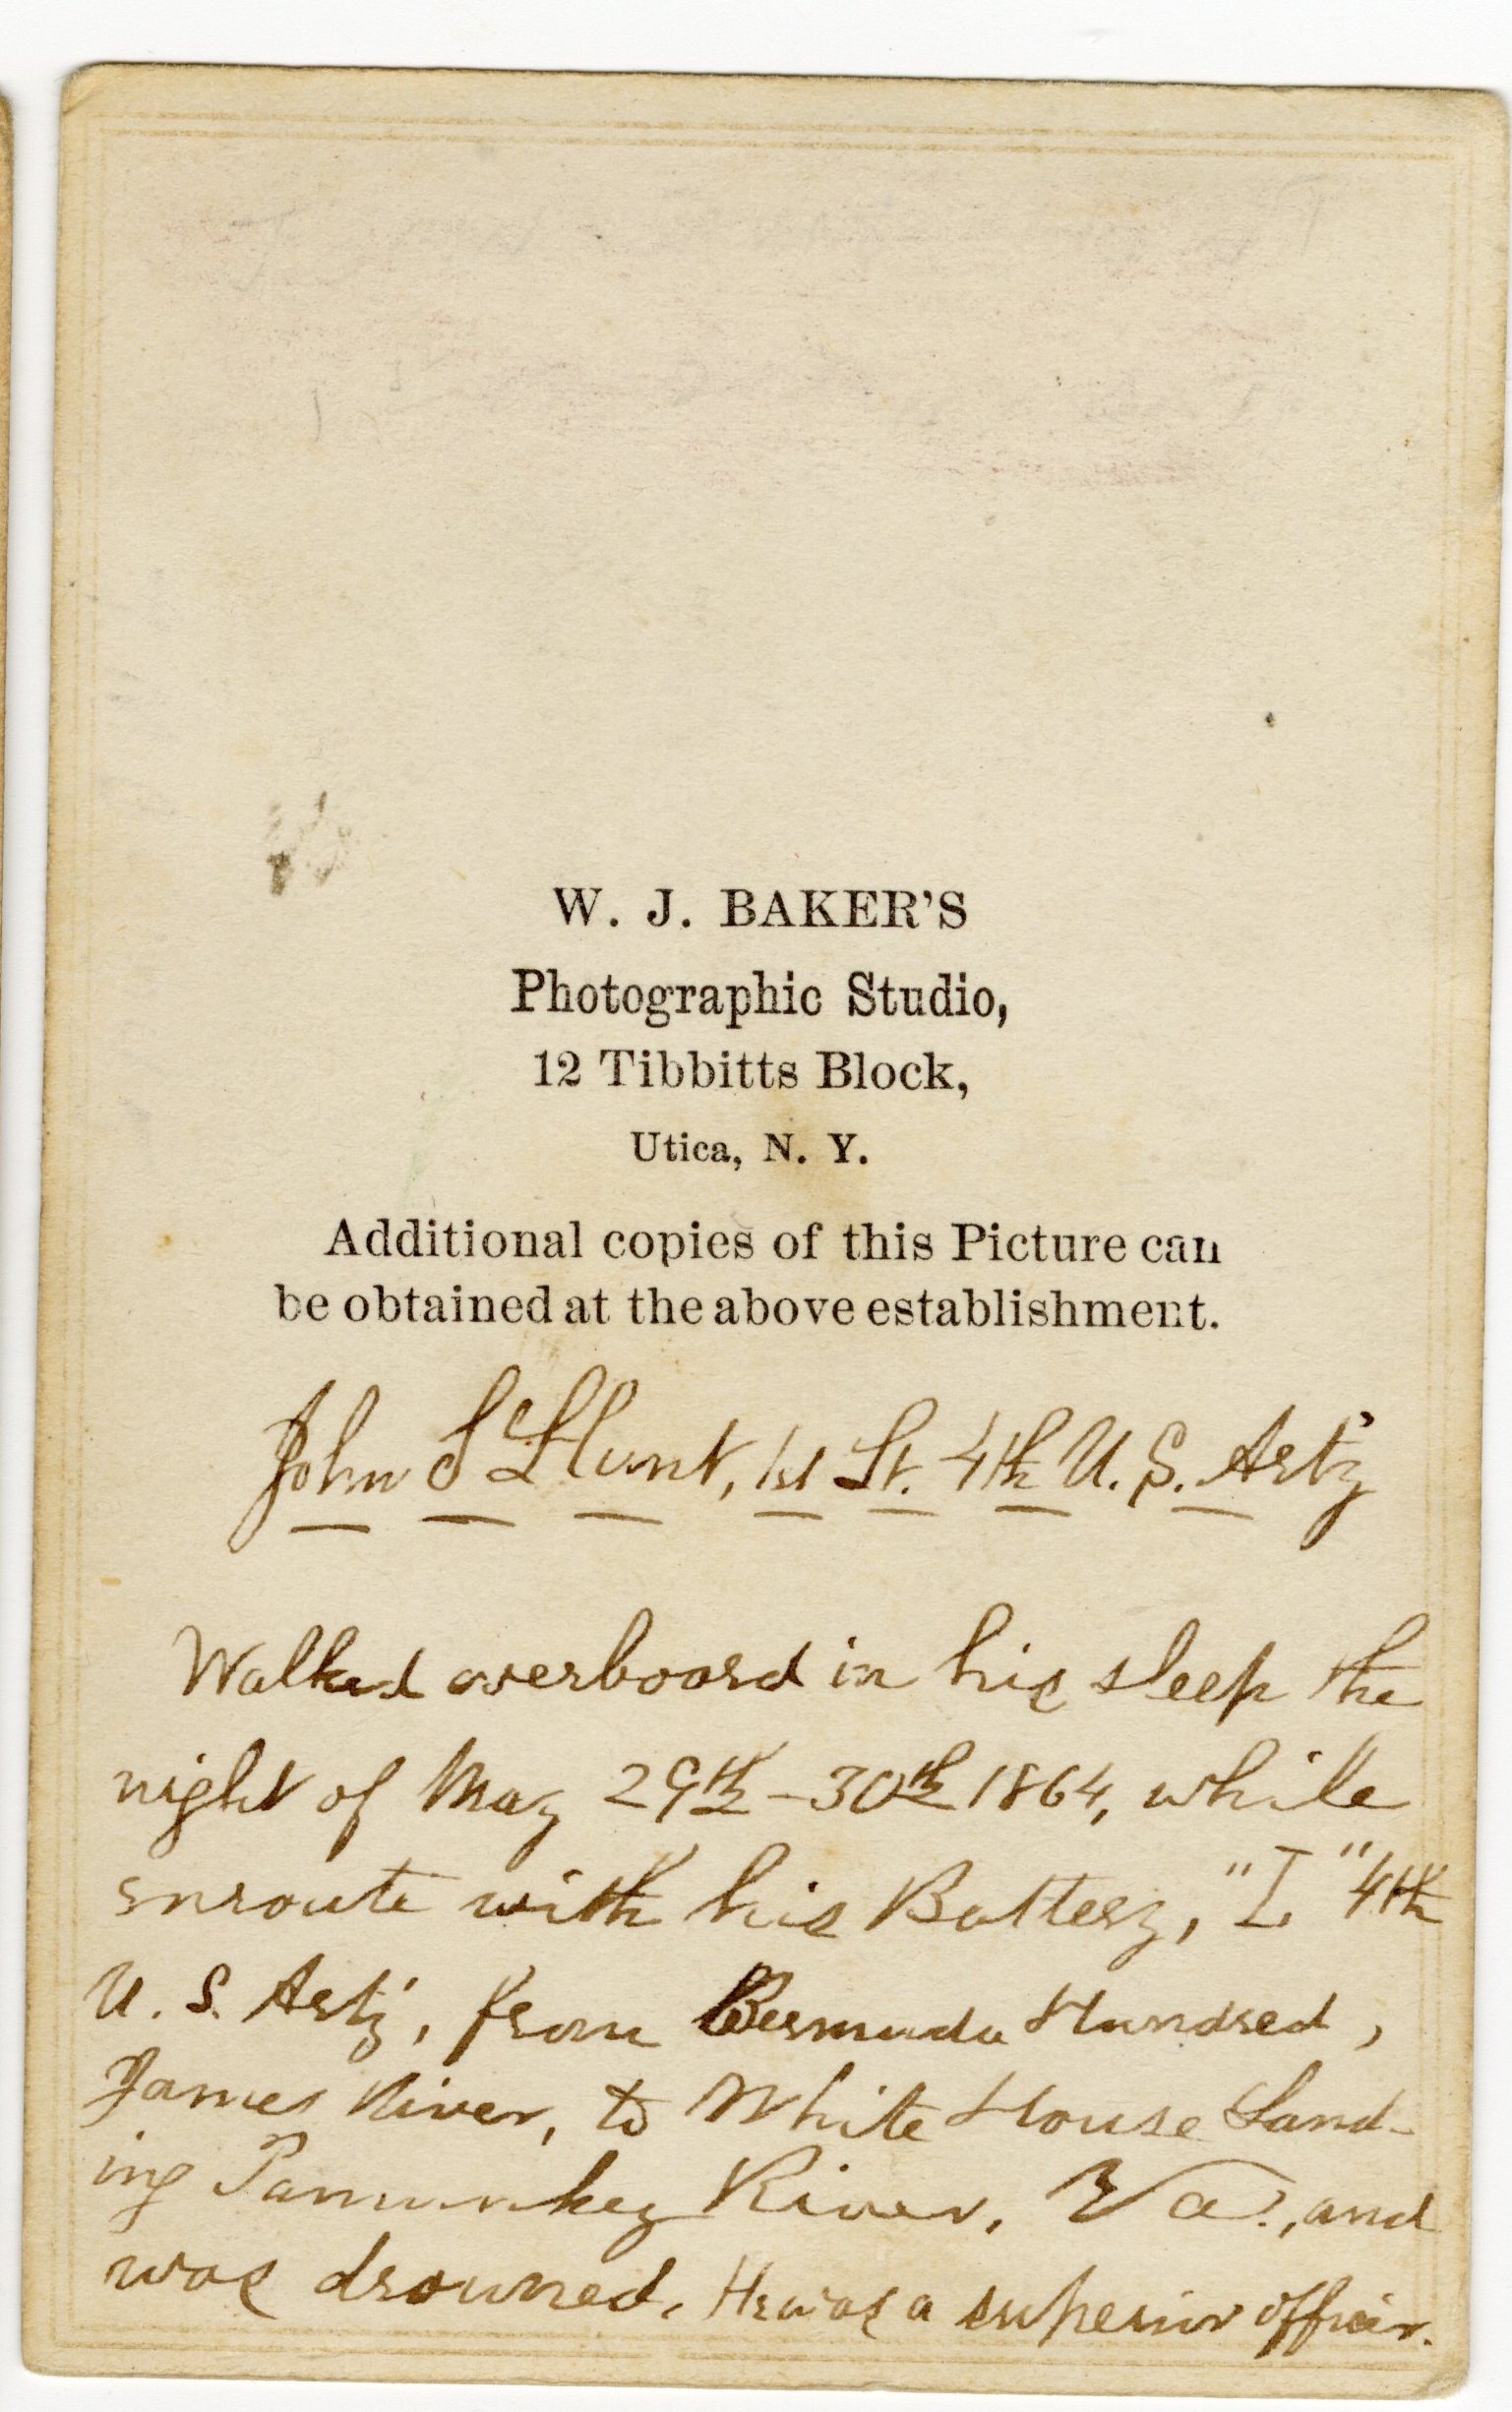 W. J. BAKER'S
Photographic Studio,
12 Tibbitts Block,
Utica, N. Y.
Additional copies of this Picture can
be obtained at the above establishment.
John S Hunt, 1st Lt. 4th U. S. Art'y
Walked overboard in his sleep the
night of May 29th - 30th 1864, while
enroute with his Battery, "L" 4th
U. S. Art'y, from Bermuda Hundred,
James River, to White House Land-
ing Pamunkey River, Va., and
was drowned. He was a superior officer.